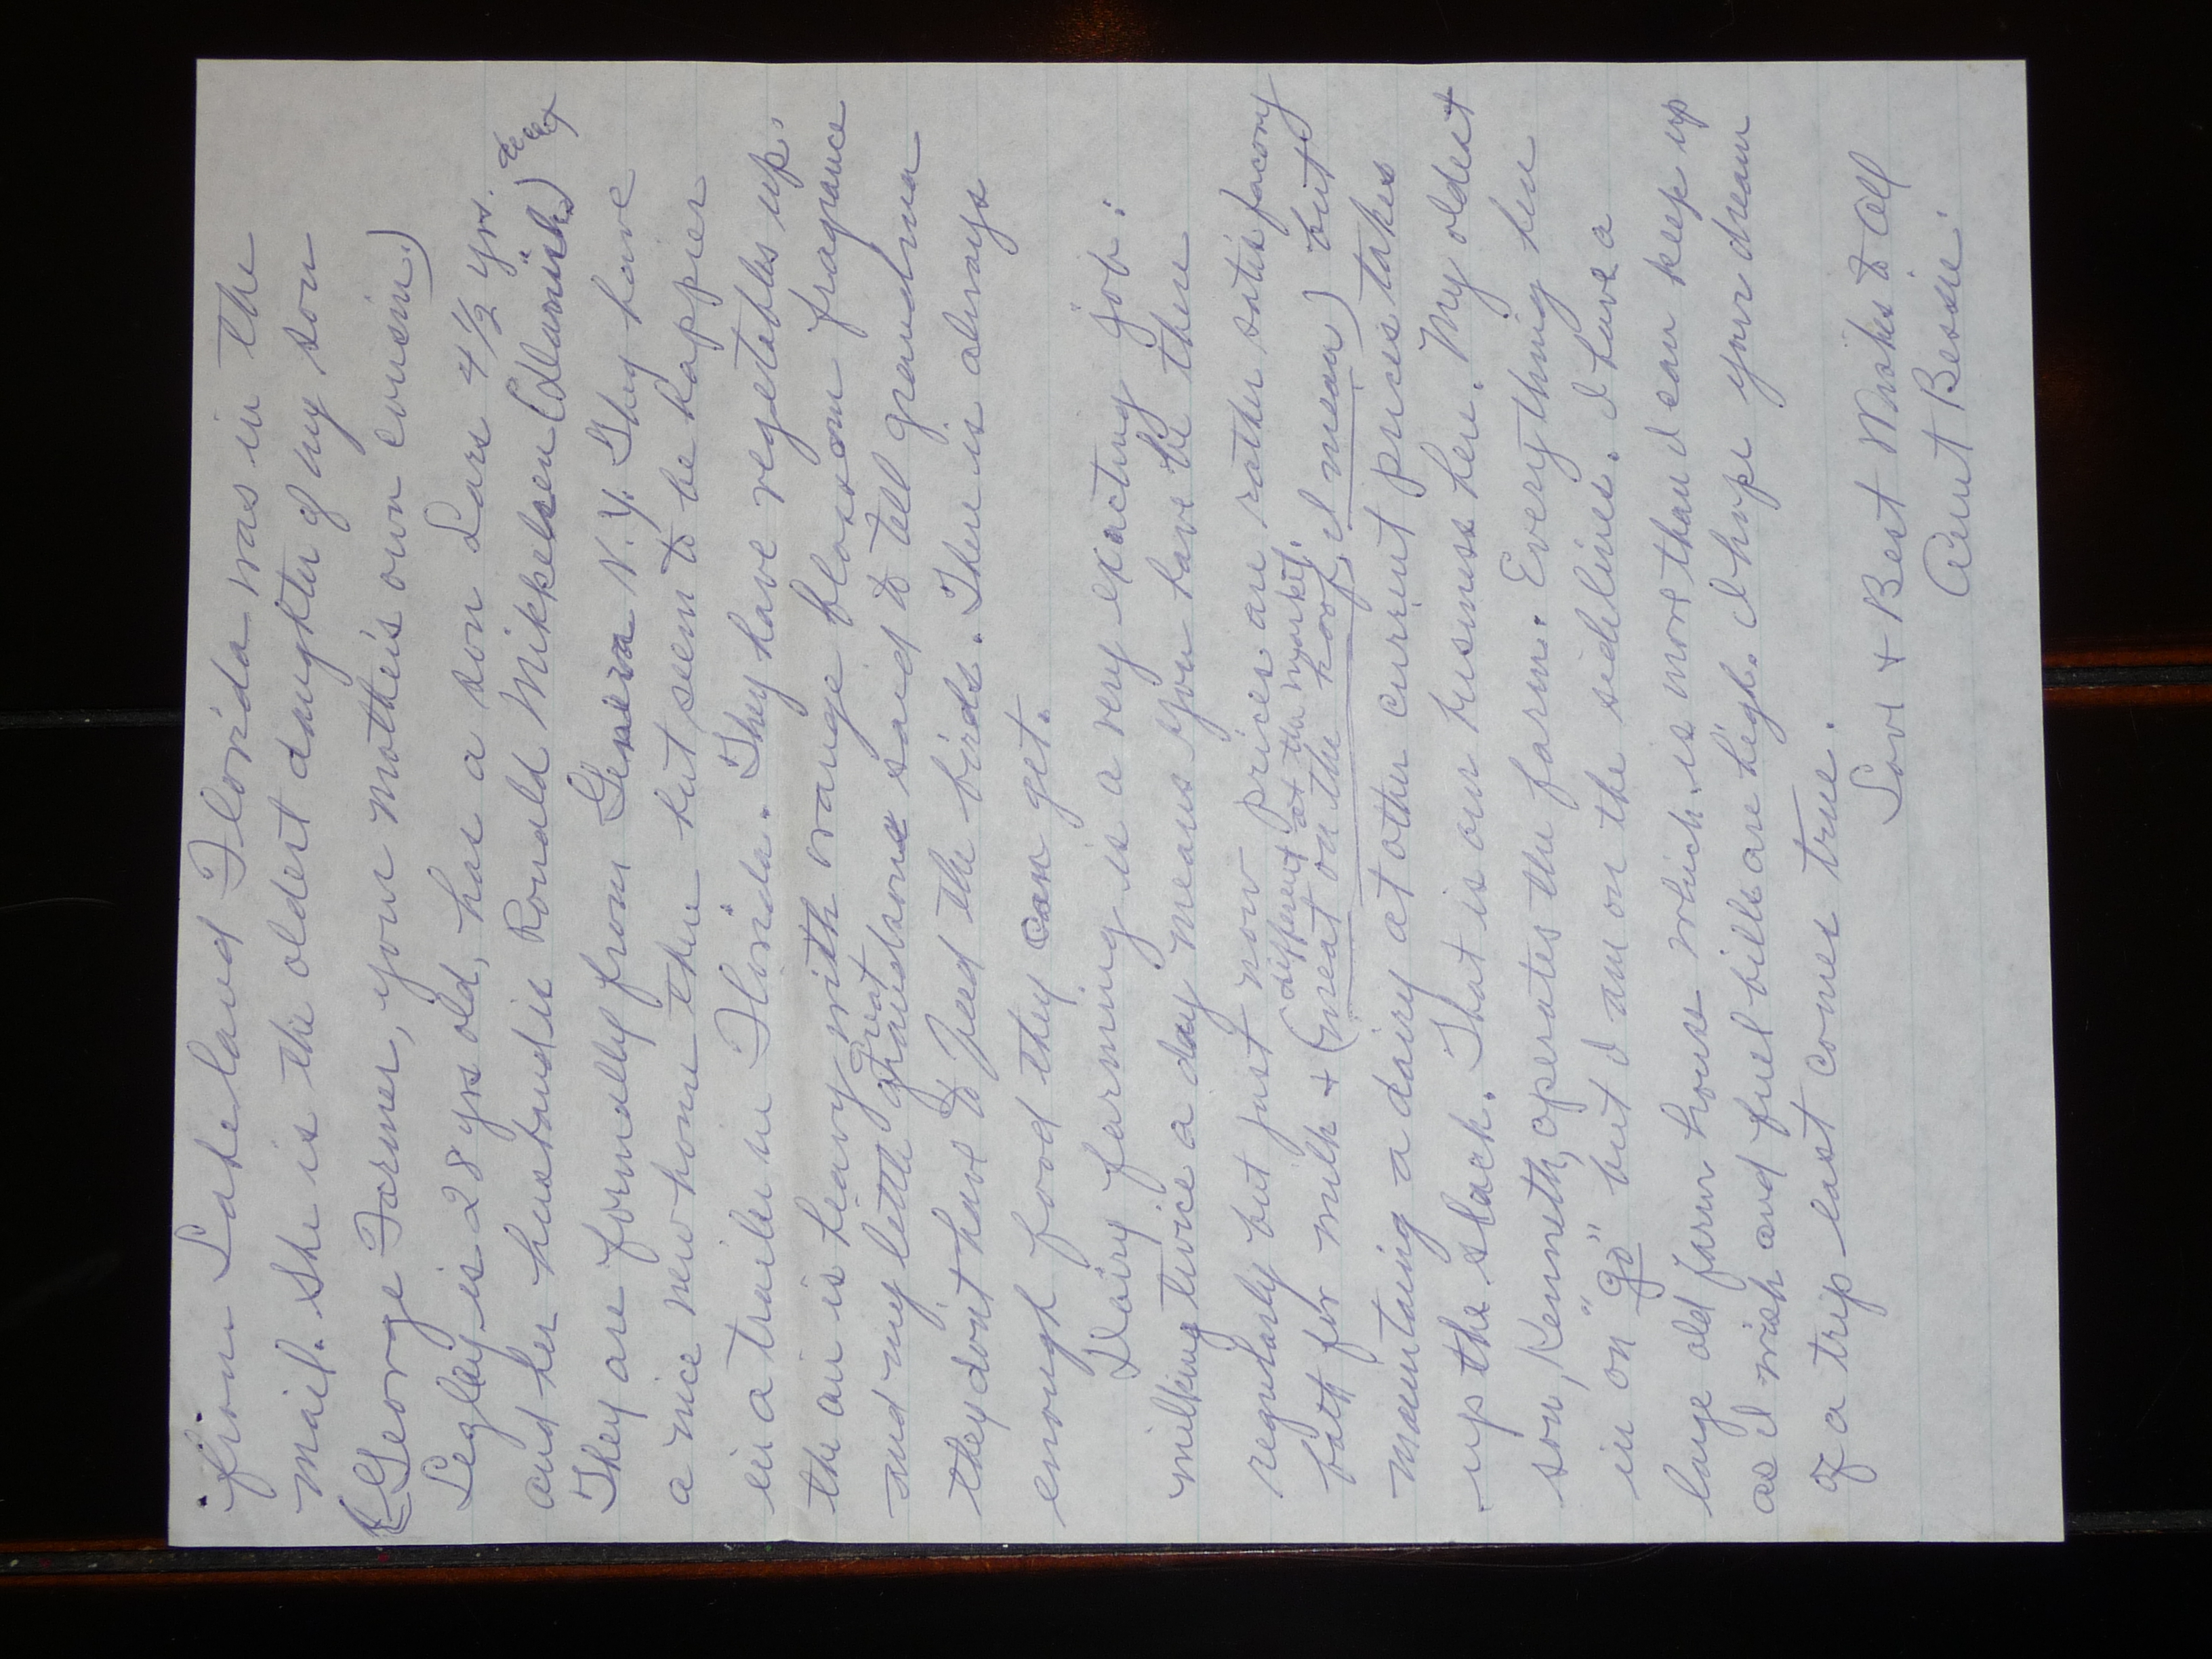 from Lakeland Florida was in the
mail. She is the oldest daughter of my son
(George Farmer, your mother's own cousin.)
Lezley is 28 yrs old, has a son Lars 4 1/2 yrs.
and her husband is Ronald Mikkelsen (Danish)
They are formerly from Geneva N.Y. They have
a nice new home there but seem to be happier
in a trailer in Florida. They have vegetables up.
the air is heavy with orange blossom fragrance
and my little great grandson said to tell grandma
they dont have to feed the birds. There is always
enough food they can get.
Dairy farming is a very exacting job:
milking twice a day means you have to be there
regularly but just now prices are rather satisfacory
different at the market.
both for milk + (meat on the hoof, I mean) but
maintaing a dairy at other current prices takes
up the slack. That is our business here. My oldest
son, Kenneth, operates the farm. Everything here
in on "go" but I am on the sidelines. I have a
large old farm house which is more than I can keep up
as I wish and fuel bills are high. I hope your dream
of a trip east comes true.
Love + Best Wishes to all
Aunt Bessie.